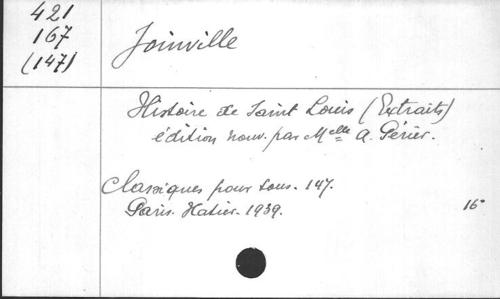 421
167
(147)
Joinville
Histoire de Saint Louis (Extraits)
édition nouv. par Melle A. Périer.
Classiques pour tous. 147.
Paris. Hatier. 1939.
16°